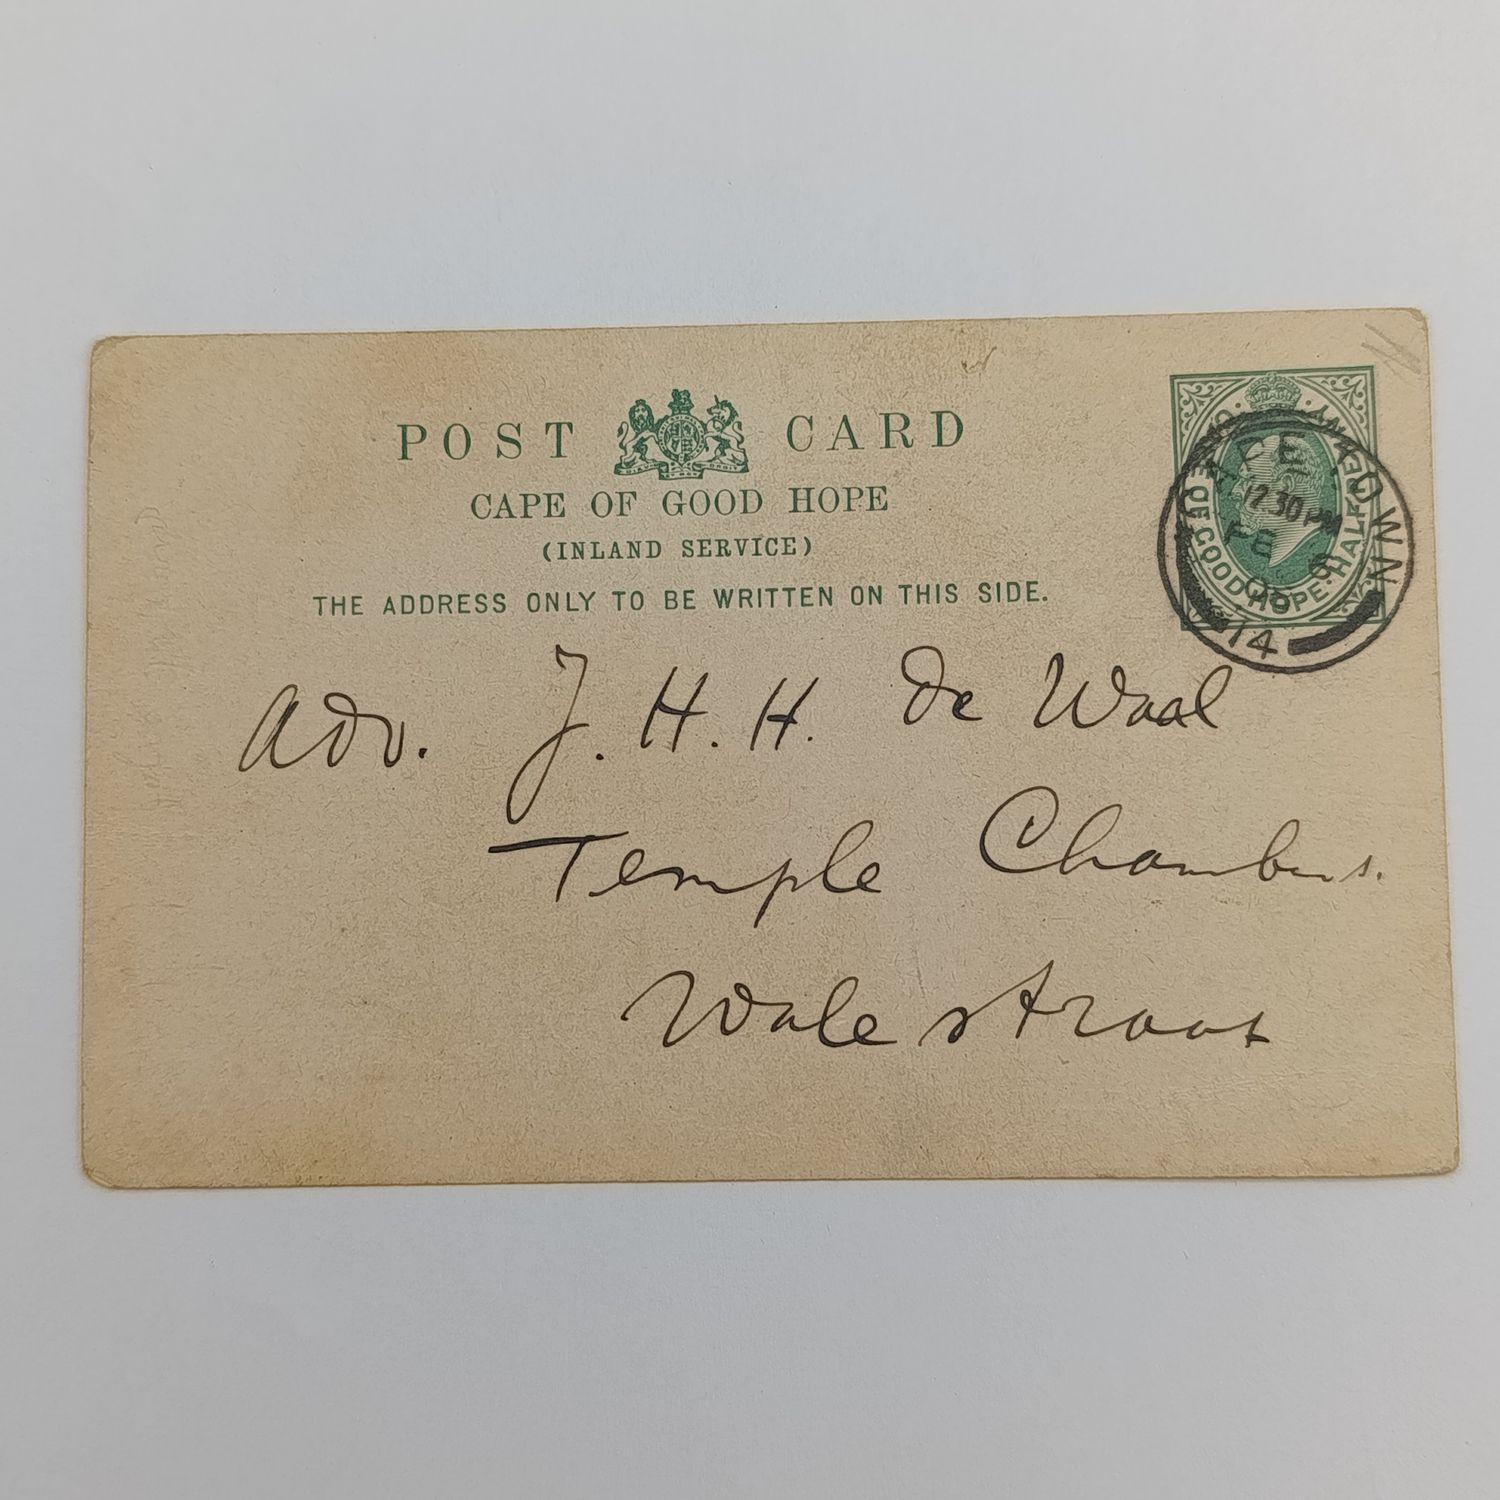 POST CARD
CAPE OF GOOD HOPE
(INLAND SERVICE)
THE ADDRESS ONLY TO BE WRITTEN ON THIS SIDE.
CAPE OF GOOD HOPE · HALFPENNY
CAPE TOWN
12.30 PM
FE 6
14
Adv. J. H. H. de Waal
Temple Chambers.
Wale straat